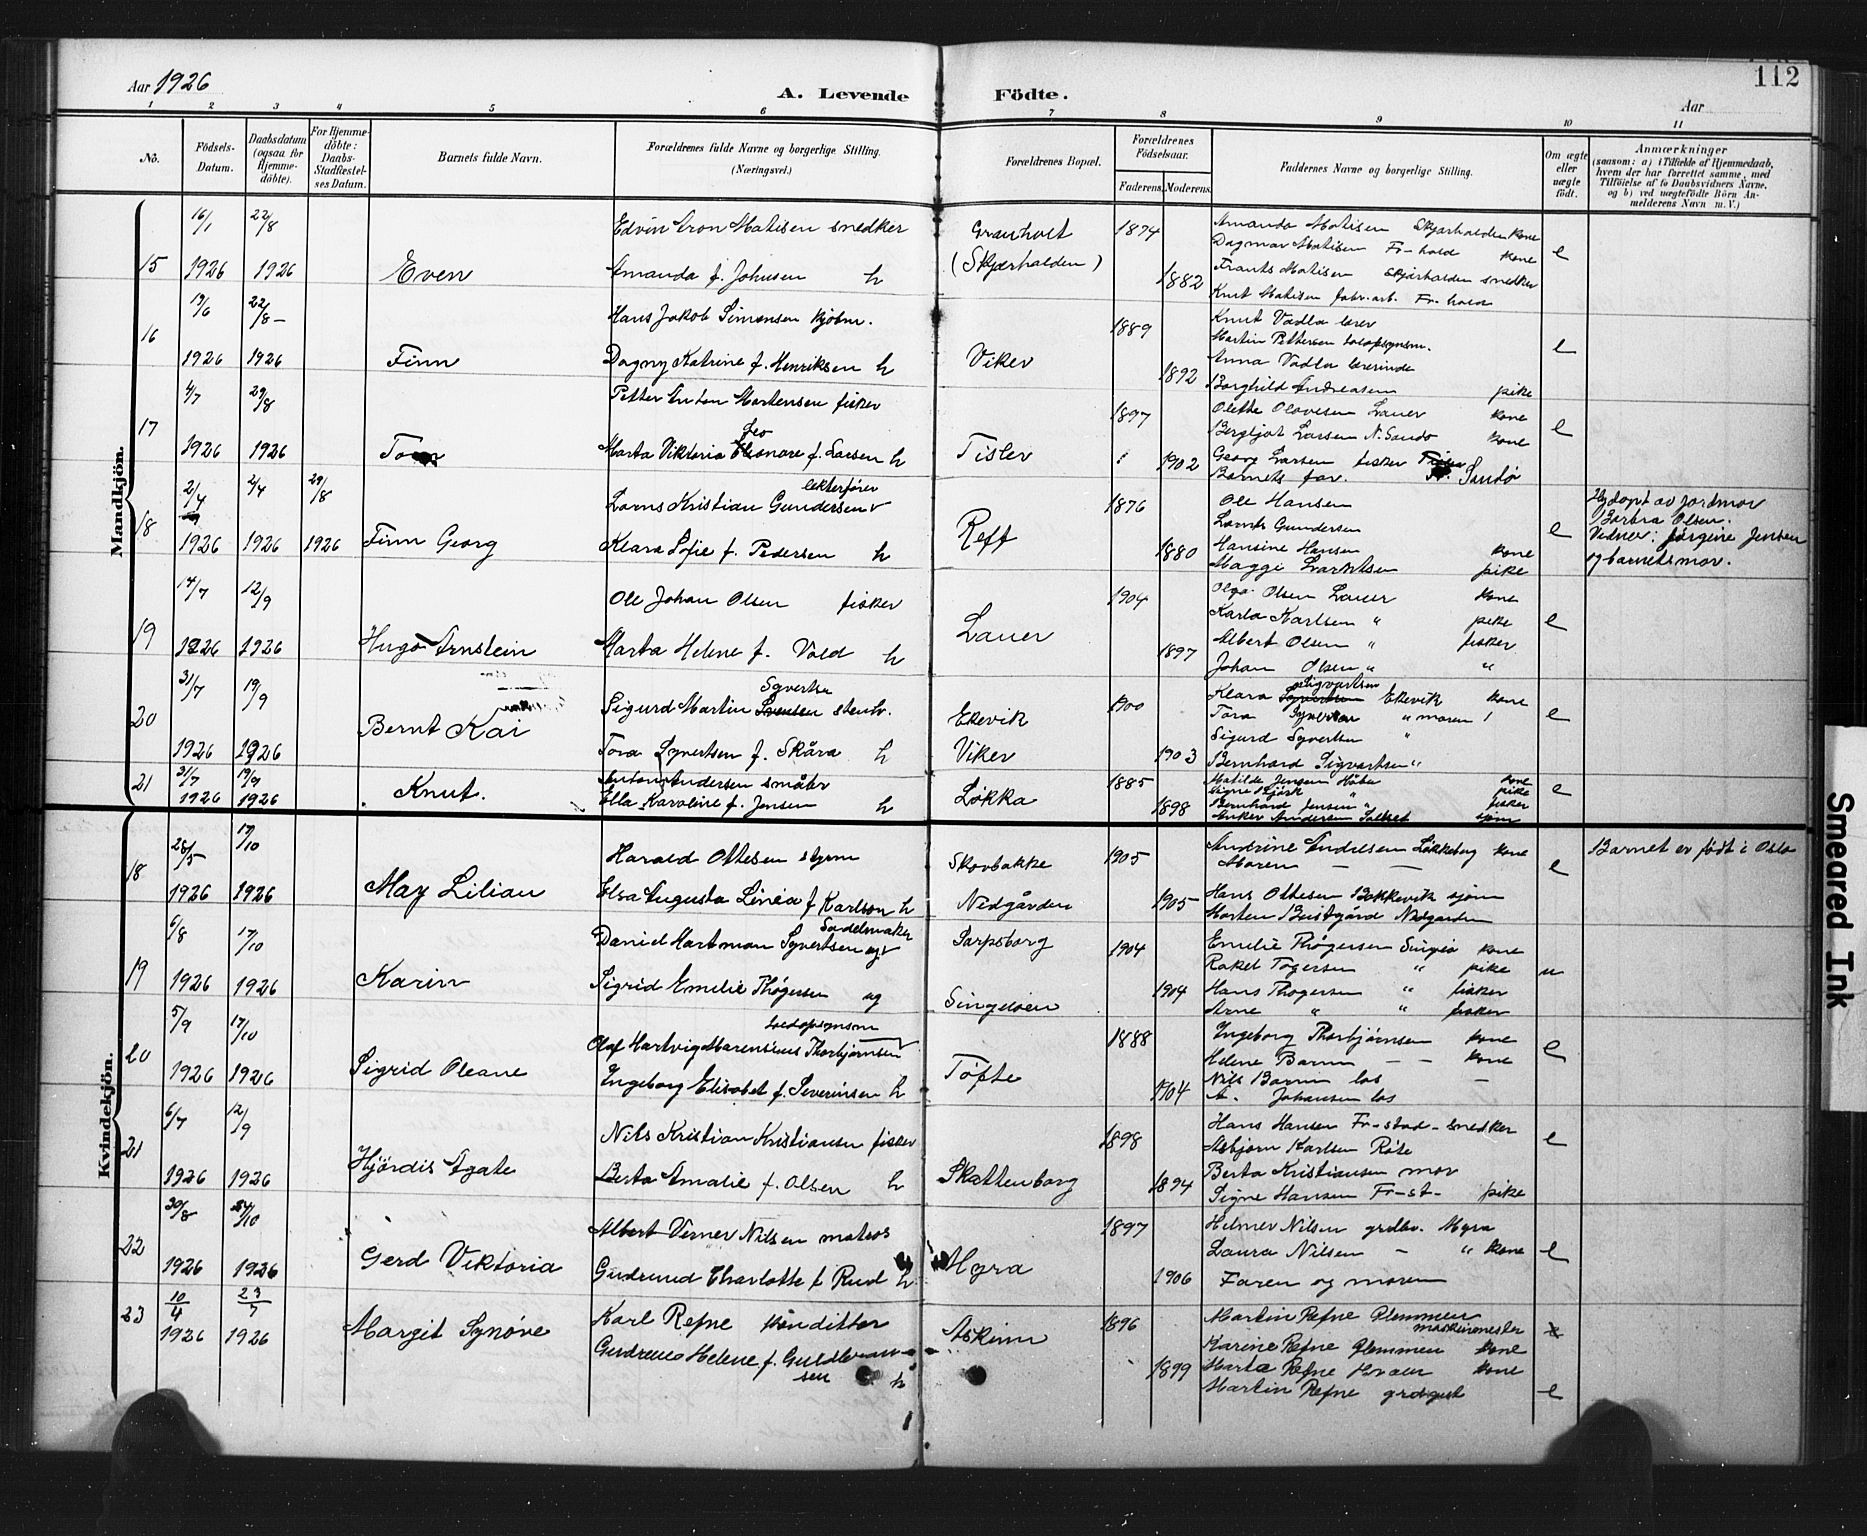 Aar 1926
A. Levende Födte.
112
Aar
1 2 3 4 5 6 7 8 9 10 11
No.
Födsels-Datum.
Daabsdatum (ogsaa for Hjemme-döbte).
For Hjemme-döbte: Daabs-Stadfæstel-ses Datum.
Barnets fulde Navn.
Forældrenes fulde Navne og borgerlige Stilling. (Næringsvei.)
Forældrenes Bopæl.
Forældrenes Födselsaar.
Faderens. Moderens.
Faddernes Navne og borgerlige Stilling.
Om ægte eller uægte födt.
Anmærkninger
(saasom: a) i Tilfælde af Hjemmedaab,
hvem der har forrettet samme, med
Tilföielse af to Daabsvidners Navne,
og b) ved uægtefödte Börn An-
melderens Navn m. V.)
Mandkjön.
15 16/1 1926 22/8 1926 Even
Edvin Aron Matisen snedker
Amanda f. Johnsen h
Granholt (Skjærhalden)
1874 1882
Amanda Matisen Skjærhalden kone
Dagmar Matisen Fr-hald kone
Frants Matisen Skjærhalden snedker
Knut Matisen fabr.arb. Fr-hald
e
16 19/6 1926 22/8 - 1926 Finn
Hans Jakob Simensen kjøbm.
Dagny Katrine f. Henriksen h
Viker
1889 1892
Knut Vadla lærer
Martin Pettersen tolopsynsm.
Anna Vadla lærerinde
Borghild Andreasen pike
e
17 4/7 1926 29/8 1926 Tom
Petter Anton Mortensen fisker
Marta Viktoria Eleonore f. Larsen h
Leo
Tisler
1897 1902
Olette Olavesen Lauer kone
Bergljot Larsen N. Sandø kone
Georg Larsen fisker
Barnets far. Sandø
e
18 2/4 1926 2/4 1926 29/8 1926 Finn Georg
Lorns Kristian Gundersen
lekterfører
Klara Sofie f. Pedersen h
Reff
1876 1880
Ole Hansen
Lornts Gundersen
Hansine Hansen kone
Maggi Larntsen pike
e
Hjdøpt av jordmor
Barbra Olsen.
Vidner: Jørgine Jensen
og barnets mor.
19 14/7 1926 12/9 1926 Hugo Arnstein
Ole Johan Olsen fisker
Marta Helene f. Vold h
Lauer
1904 1897
Olga Olsen Lauer kone
Karla Karlsen " pike
Albert Olsen " fisker
Johan Olsen " "
e
20 31/7 1926 19/9 1926 Bernt Kai
Sigurd Martin Syvertsen stenh.
Tora Syvertsen f. Skåra h
Ekevik
Viker
1900 1903
Klara Sigvartsen Ekevik kone
Tora Syvertsen " moren
Sigurd Syvertsen "
Bernhard Sigvartsen "
e
21 31/7 1926 19/9 1926 Knut.
Anton Andersen småbr
Ella Karoline f. Jensen h
Løkka
1885 1898
Matilde Jensen Håbu kone
Signe Bjørk " pike
Bernhard Jensen " fisker
Anker Andersen
e
Kvindekjön.
18 28/5 1926 17/10 1926 May Lilian
Harald Ottesen styrm
Elsa Augusta Linéa f Karlson h
Skovbakke
Nedgården
1905 1905
Andrine Andersen Løkkeberg kone
Moren — —
Hans Ottesen Bakkevik sjøm
Morten Bustgård Nedgarden
e
Barnet er født i Oslo
19 6/8 1926 17/10 1926 Karin
Daniel Hartman Syvertsen og
Sadelmaker
Sigrid Emelie Thøgersen ug
Sarpsborg
Singeløen
1904 1904
Emelie Thøgersen Singlø kone
Rakel Togersen " pike
Hans Thogersen " fisker
Arne " " fisker
u
20 5/9 1926 17/10 1926 Sigrid Oleane
Olaf Hartvig Marensius Thorbjørnsen
toldopsynsm
Ingeborg Elisabet f. Severinsen h
Tøfte
1888 1904
Ingeborg Thorbjørnsen kone
Helene Barm — — kone
Nils Barm los —
A. Johansen los
e
21 6/7 1926 12/9 1926 Hjördis Agate
Nils Kristian Kristiansen fisker
Berta Amalie f. Olsen h
Skattenborg
1898 1894
Hans Hansen Fr-stad - snedker
Asbjørn Karlsen Røte
Berta Kristiansen mor
Signe Hansen Fr-st- pike
e
22 30/8 1926 24/10 1926 Gerd Viktoria
Albert Verner Nilsen matros
Gudrund Charlotte f Rud h
Myra
1897 1906
Helmer Nilsen grdbr. Myra
Laura Nilsen — " kone
Faren og moren
e
23 10/4 1926 23/7 1926 Margit Synøve
Karl Refne konditter
Gudrun Helene f. Guldbran-
sen h
Askim
1896 1899
Martin Refne Glemmen
maskinmester
Karine Refne Glemmen kone
Marta Refne Hvaler kone
Martin Refne grdgut
e
Smeared Ink